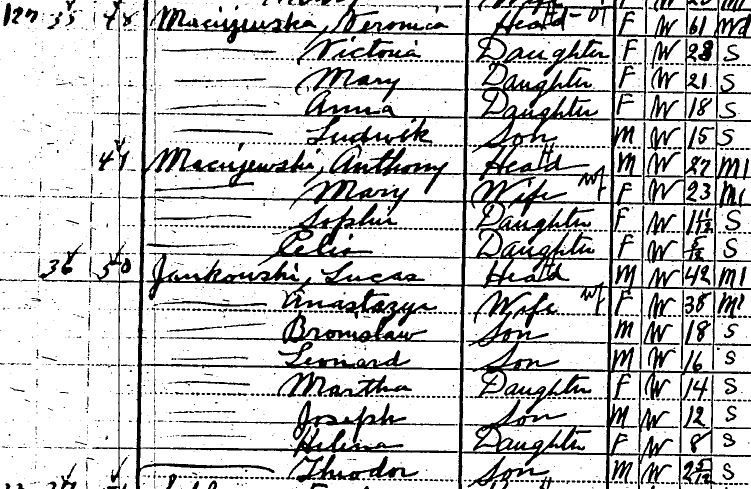 127 35 48 Maciejewska, Veronica Head F W 61 Wd
Victoria Daughter F W 23 S
Mary Daughter F W 21 S
Anna Daughter F W 18 S
Ludwik Son M W 15 S
49 Maciejewski, Anthony Head M W 27 M1
Mary Wife F W 23 M1
Sophie Daughter F W S
Celia Daughter F W 5/12 S
36 50 Jankowski, Lucas Head M W 42 M1
Anastazya Wife F W 38 M1
Bronislaw Son M W 18 S
Leonard Son M W 16 S
Martha Daughter F W 14 S
Joseph Son M W 12 S
Helena Daughter F W 8 S
Theodor Son M W 2 5/12 S